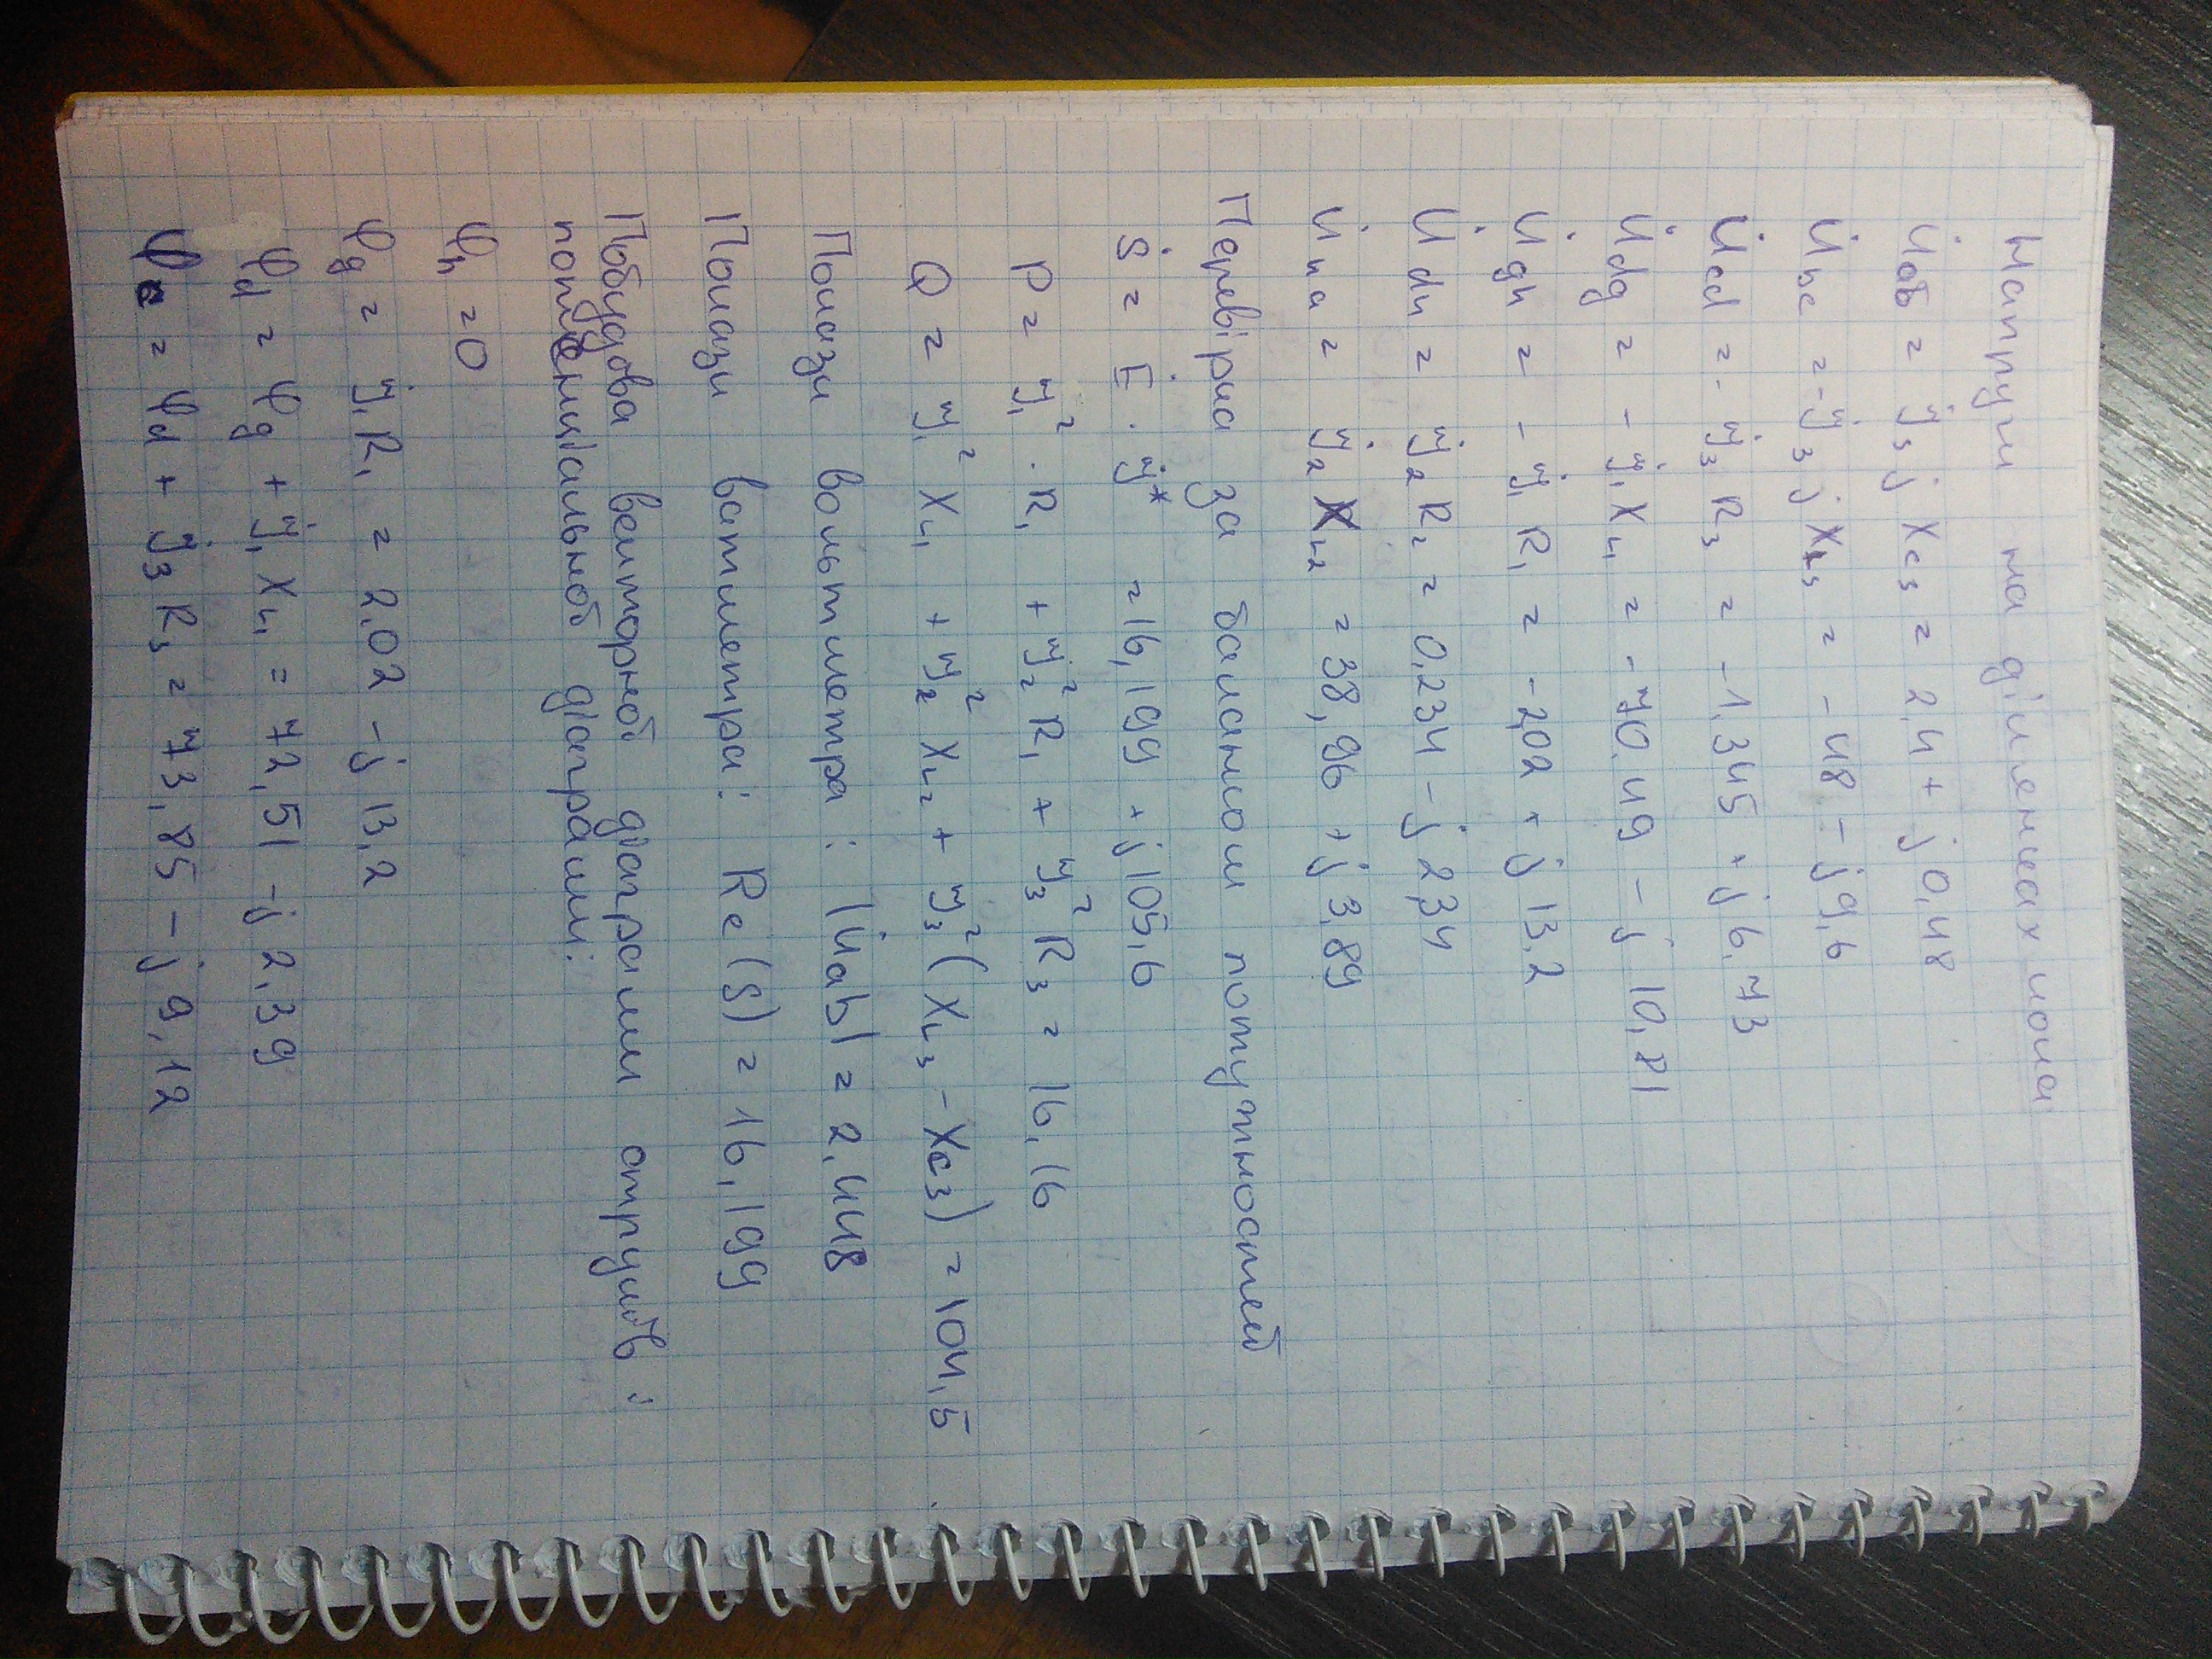 Напруги на ділянках кола
U̇ab = İ₃ j Xc₃ = 2,4 + j0,48
U̇bc = -İ₃ j XL₃ = -48 - j9,6
U̇cd = -İ₃ R₃ = -1,345 + j6,73
U̇dg = -İ₁ XL₁ = -70,49 - j 10,81
U̇gn = -İ₁ R₁ = -2,02 + j 13,2
U̇dn = İ₂ R₂ = 0,234 - j 2,34
U̇na = İ₂ XL₂ = 38,96 + j 3,89
Перевірка за балансом потужностей
Ṡ = Ė · İ* = 16,199 + j105,6
P = I₁² · R₁ + I₂² R₁ + I₃² R₃ = 16,16
Q = I₁² XL₁ + I₂² XL₂ + I₃² (XL₃ - Xc₃) = 104,5
Покази вольтметра: |U̇ab| = 2,448
Покази ватметра: Re(S) = 16,199
Побудова векторної діаграми струмів:
потенціальної діаграми:
φn = 0
φg = İ₁ R₁ = 2,02 - j 13,2
φd = φg + İ₁ XL₁ = 72,51 - j 2,39
φc = φd + İ₃ R₃ = 73,85 - j 9,12